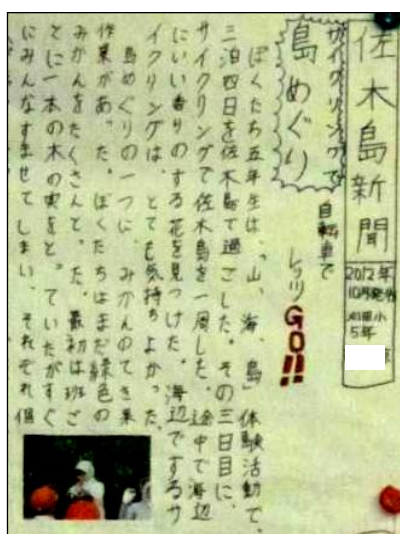 佐木島新聞
2012年
10月発行
5年
サイクリングで
島めぐり
自転車で
レッツGO!!
ぼくたち五年生は、「山、海、島」体験活動で、
三泊四日を佐木島で過ごした。その三日目に、
サイクリングで佐木島を一周した。途中で海辺
にいい香りのする花を見つけた。海辺でするサ
イクリングは、とても気持ちよかった。
島めぐりの一つに、みかんのてき果
作業があった。ぼくたちはまだ緑色の
みかんをたくさんとった。最初は班ご
とに一本の木の実をとっていたがすぐ
にみんなすませてしまい、それぞれ個